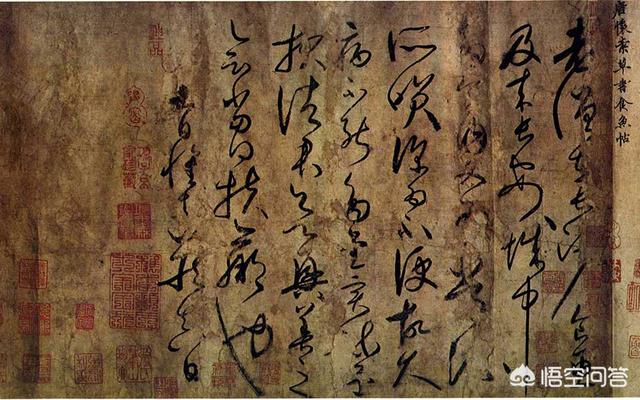 唐懷素草書食魚帖
老僧在長沙食魚
及來長安城中多
食肉又為常流
所笑深為不便故久
病不能多書實疏
還報諸君欲興善之
會當得扶羸也
九日懷素藏真白
悟空问答